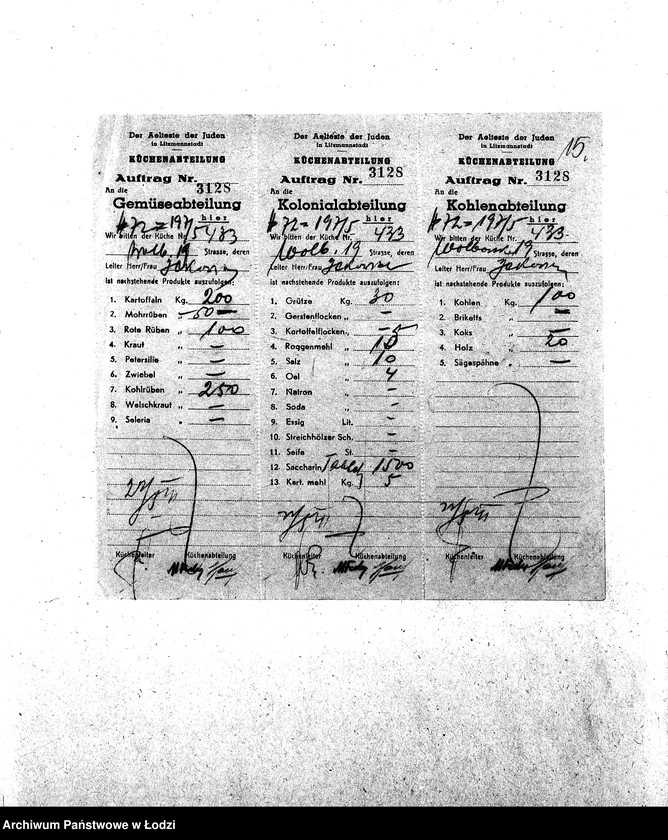 15.
Der Aelteste der Juden
in Litzmannstadt
KÜCHENABTEILUNG
Auftrag Nr. 3128
An die
Gemüseabteilung
hier
Wir bitten der Küche Nr. 433
Wolb. 19 Strasse, deren
Leiter Herr/Frau
ist nachstehende Produkte auszufolgen:
1. Kartoffeln Kg. 200
2. Mohrrüben 50 —
3. Rote Rüben „ 100
4. Kraut „ —
5. Petersilie „ —
6. Zwiebel „ —
7. Kohlrüben „ 250
8. Welschkraut „ —
9. Seleria „ —
Küchenleiter Küchenabteilung
Der Aelteste der Juden
in Litzmannstadt
KÜCHENABTEILUNG
Auftrag Nr. 3128
An die
Kolonialabteilung
hier
Wir bitten der Küche Nr. 433
Wolb. 19 Strasse, deren
Leiter Herr/Frau
ist nachstehende Produkte auszufolgen:
1. Grütze Kg. 30
2. Gerstenflocken „ —
3. Kartoffelflocken „ —
4. Roggenmehl „ 10
5. Salz „ 10
6. Oel „ 4
7. Natron „ —
8. Soda „ —
9. Essig Lit. —
10. Streichhölzer Sch. —
11. Seife St. —
12. Saccharin Tabl. 1500
13 Kart. mehl Kg. 5
Küchenleiter Küchenabteilung
Der Aelteste der Juden
in Litzmannstadt
KÜCHENABTEILUNG
Auftrag Nr. 3128
An die
Kohlenabteilung
hier
Wir bitten der Küche Nr. 433
19 Strasse, deren
Leiter Herr/Frau
ist nachstehende Produkte auszufolgen:
1. Kohlen Kg. 100
2. Briketts „ —
3. Koks „ —
4. Holz „ 20
5. Sägespähne „ —
Küchenleiter Küchenabteilung
Archiwum Państwowe w Łodzi